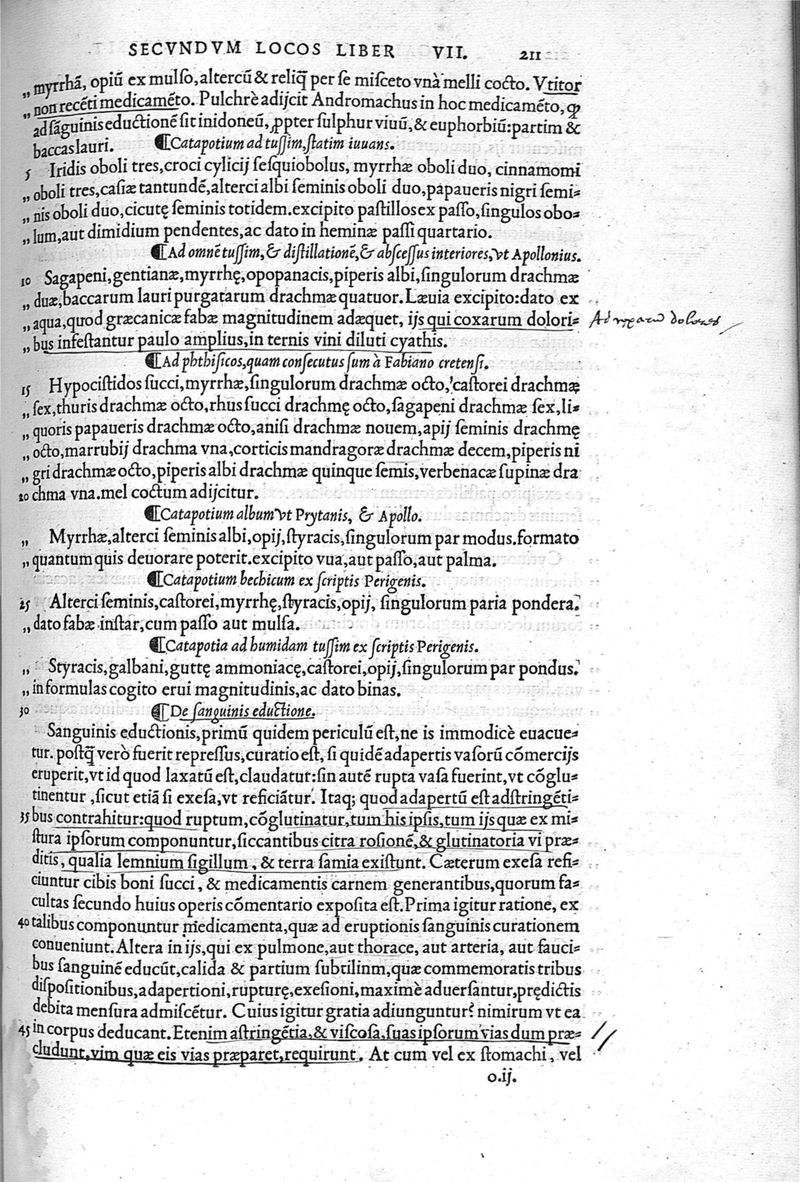 SECVNDVM LOCOS LIBER VII. 211
„ myrrhã, opiũ ex mulſo, altercũ & reliq̃ per ſe miſceto vnà melli cocto. Vtitor
„ non recẽti medicamẽto. Pulchrè adijcit Andromachus in hoc medicamẽto, ꝙ
ad ſãguinis eductionẽ ſit inidoneũ, ꝓpter ſulphur viuũ, & euphorbiũ: partim &
baccas lauri. ¶Catapotium ad tuſſim, ſtatim iuuans.
5 Iridis oboli tres, croci cylicij ſeſquiobolus, myrrhæ oboli duo, cinnamomi
„ oboli tres, caſiæ tantundẽ, alterci albi ſeminis oboli duo, papaueris nigri ſemi-
„ nis oboli duo, cicutę ſeminis totidem. excipito paſtillos ex paſſo, ſingulos obo-
„ lum, aut dimidium pendentes, ac dato in heminæ paſſi quartario.
¶Ad omnẽ tuſſim, & diſtillationẽ, & abſceſſus interiores, vt Apollonius.
10 Sagapeni, gentianæ, myrrhę, opopanacis, piperis albi, ſingulorum drachmæ
„ duæ, baccarum lauri purgatarum drachmæ quatuor. Læuia excipito: dato ex
„ aqua, quod græcanicæ fabæ magnitudinem adæquet, ijs qui coxarum dolori-
„ bus infeſtantur paulo amplius, in ternis vini diluti cyathis.
¶Ad phthiſicos, quam conſecutus ſum à Fabiano cretenſi.
15 Hypociſtidos ſucci, myrrhæ, ſingulorum drachmæ octo, caſtorei drachmæ
„ ſex, thuris drachmæ octo, rhus ſucci drachmę octo, ſagapeni drachmæ ſex, li-
„ quoris papaueris drachmæ octo, aniſi drachmæ nouem, apij ſeminis drachmę
„ octo, marrubij drachma vna, corticis mandragoræ drachmæ decem, piperis ni
„ gri drachmæ octo, piperis albi drachmæ quinque ſemis, verbenacæ ſupinæ dra
20 chma vna. mel coctum adijcitur.
¶Catapotium album vt Prytanis, & Apollo.
„ Myrrhæ, alterci ſeminis albi, opij, ſtyracis, ſingulorum par modus. formato
„ quantum quis deuorare poterit. excipito vua, aut paſſo, aut palma.
¶Catapotium bechicum ex ſcriptis Perigenis.
25 Alterci ſeminis, caſtorei, myrrhę, ſtyracis, opij, ſingulorum paria pondera.
„ dato fabæ inſtar, cum paſſo aut mulſa.
¶Catapotia ad humidam tuſſim ex ſcriptis Perigenis.
„ Styracis, galbani, guttę ammoniacę, caſtorei, opij, ſingulorum par pondus.
„ in formulas cogito erui magnitudinis, ac dato binas.
30 ¶De ſanguinis eductione.
Sanguinis eductionis, primũ quidem periculũ eſt, ne is immodicè euacue-
tur. poſtq̃ verò fuerit repreſſus, curatio eſt, ſi quidẽ adapertis vaſorũ cõmercijs
eruperit, vt id quod laxatũ eſt, claudatur: ſin autẽ rupta vaſa fuerint, vt cõglu-
tinentur, ſicut etiã ſi exeſa, vt reficiãtur. Itaq; quod adapertũ eſt adſtringẽti-
35 bus contrahitur: quod ruptum, cõglutinatur, tum his ipſis, tum ijs quæ ex mi-
ſtura ipſorum componuntur, ſiccantibus citra roſionẽ, & glutinatoria vi præ-
ditis, qualia lemnium ſigillum, & terra ſamia exiſtunt. Cæterum exeſa refi-
ciuntur cibis boni ſucci, & medicamentis carnem generantibus, quorum fa-
cultas ſecundo huius operis cõmentario expoſita eſt. Prima igitur ratione, ex
40 talibus componuntur medicamenta, quæ ad eruptionis ſanguinis curationem
conueniunt. Altera in ijs, qui ex pulmone, aut thorace, aut arteria, aut fauci-
bus ſanguinẽ educũt, calida & partium ſubtilinm, quæ commemoratis tribus
diſpoſitionibus, adapertioni, rupturę, exeſioni, maximè aduerſantur, prędictis
debita menſura admiſcẽtur. Cuius igitur gratia adiunguntur? nimirum vt ea
45 in corpus deducant. Etenim aſtringẽtia, & viſcoſa, ſuas ipſorum vias dum præ-
cludunt, vim quæ eis vias præparet, requirunt. At cum vel ex ſtomachi, vel
o.ij.
dolores